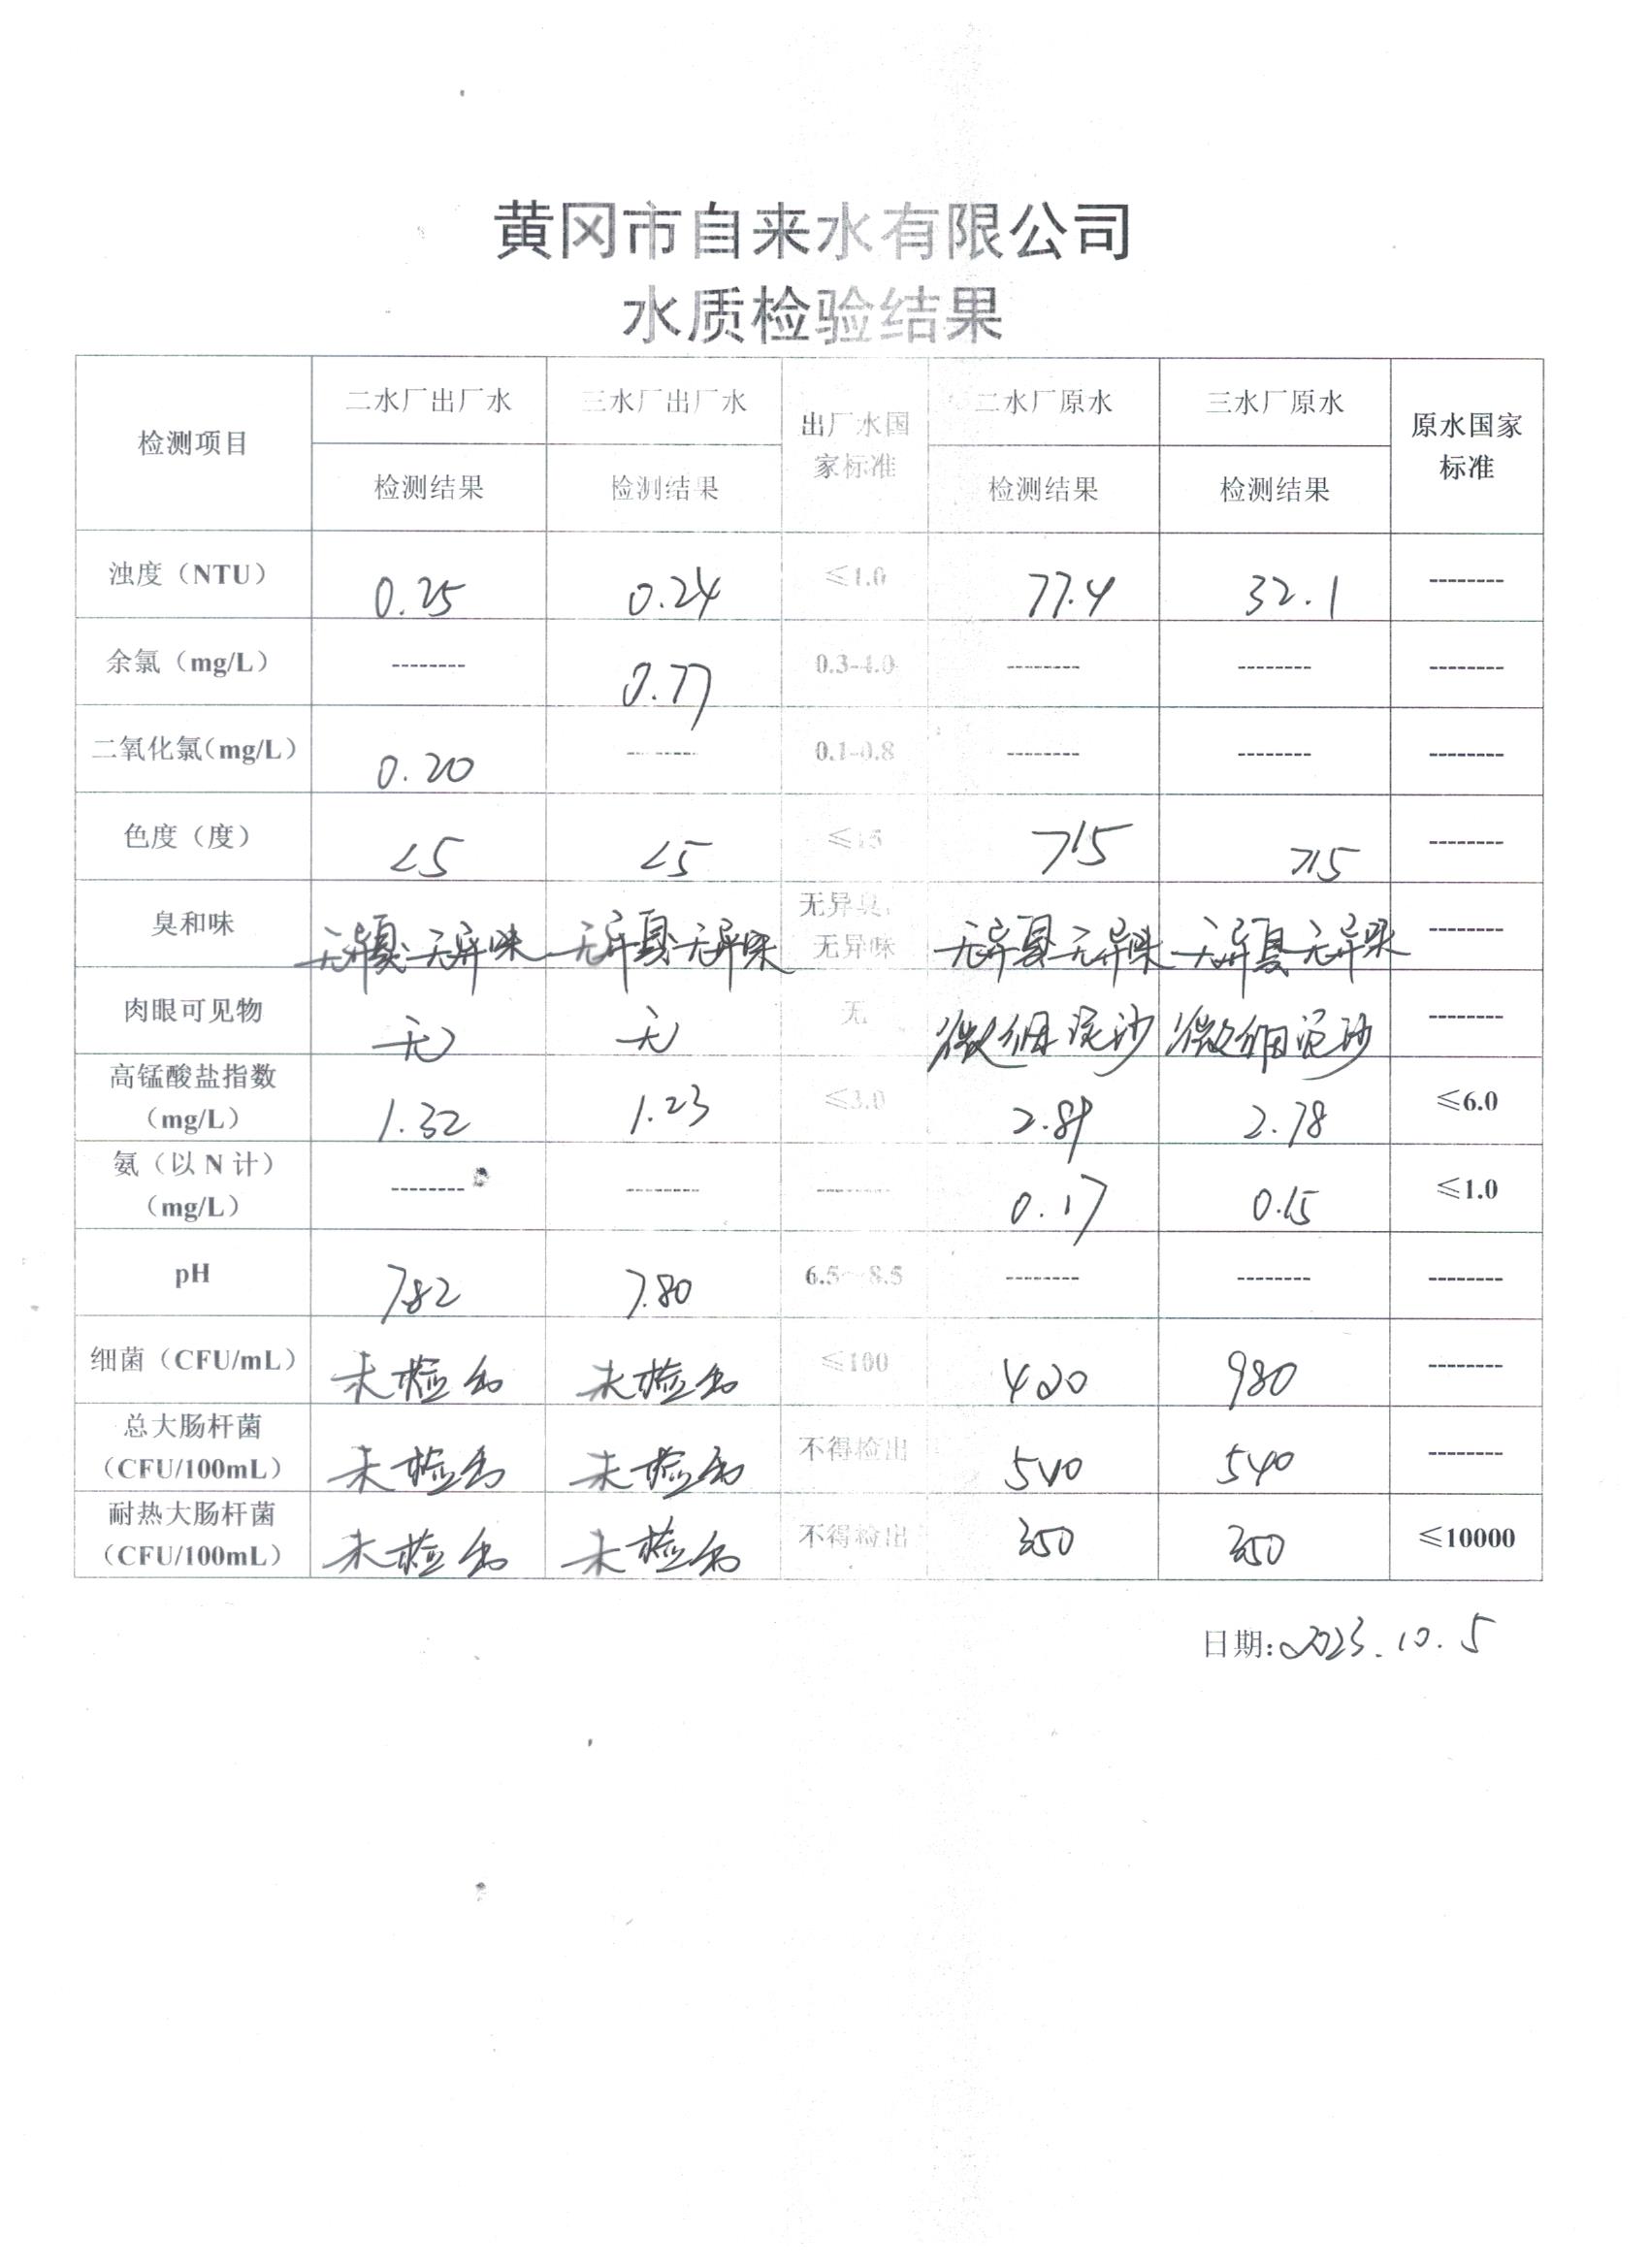 黄冈市自来水有限公司
水质检验结果
检测项目 二水厂出厂水 三水厂出厂水 出厂水国家标准 二水厂原水 三水厂原水 原水国家标准
检测结果 检测结果 检测结果 检测结果
浊度（NTU） 0.25 0.24 ≤1.0 77.4 32.1 --------
余氯（mg/L） -------- 0.77 0.3-4.0 -------- -------- --------
二氧化氯(mg/L) 0.20 -------- 0.1-0.8 -------- -------- --------
色度（度） <5 <5 ≤15 >15 >15 --------
臭和味 无异臭、无异味 无异臭无异味 无异臭、无异味 无异臭无异味 无异臭无异味 --------
肉眼可见物 无 无 无 微细泥沙 微细泥沙 --------
高锰酸盐指数（mg/L） 1.32 1.23 ≤3.0 2.78 ≤6.0
氨（以 N 计）（mg/L） -------- -------- -------- 0.17 0.15 ≤1.0
pH 7.82 7.80 6.5～8.5 -------- -------- --------
细菌（CFU/mL） 未检出 未检出 ≤100 420 980 --------
总大肠杆菌（CFU/100mL） 未检出 未检出 不得检出 540 540 --------
耐热大肠杆菌（CFU/100mL） 未检出 未检出 不得检出 350 350 ≤10000
日期:2023.10.5